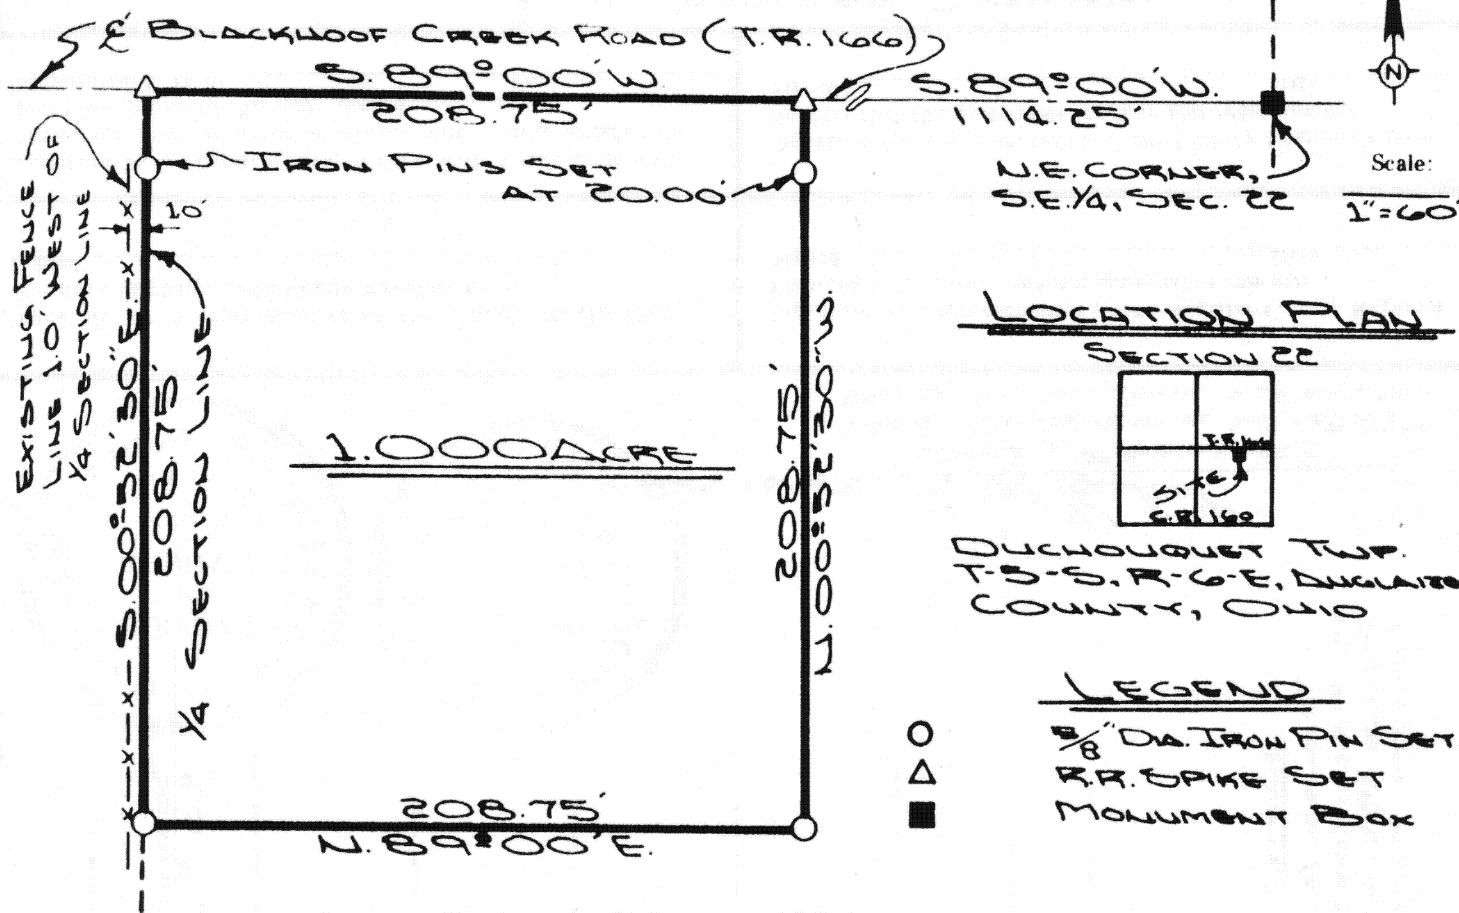 ℄ BLACKHOOF CREEK ROAD (T.R. 166)
S. 89° 00' W.
208.75'
S. 89° 00' W.
1114.25'
N
IRON PINS SET
AT 20.00'
N.E. CORNER,
S.E. 1/4, SEC. 22
Scale:
1" = 60'
EXISTING FENCE
LINE 1.0 WEST OF
1/4 SECTION LINE
1.0'
S. 00° 52' 30" E.
208.75'
1/4 SECTION LINE
1.000 ACRE
208.75'
N. 00° 52' 30" W.
LOCATION PLAN
SECTION 22
T.R. 166
SITE
C.R. 160
DUCHOUQUET TWP.
T-5-S, R-6-E, AUGLAIZE
COUNTY, OHIO
208.75'
N. 89° 00' E.
LEGEND
5/8" DIA. IRON PIN SET
R.R. SPIKE SET
MONUMENT BOX